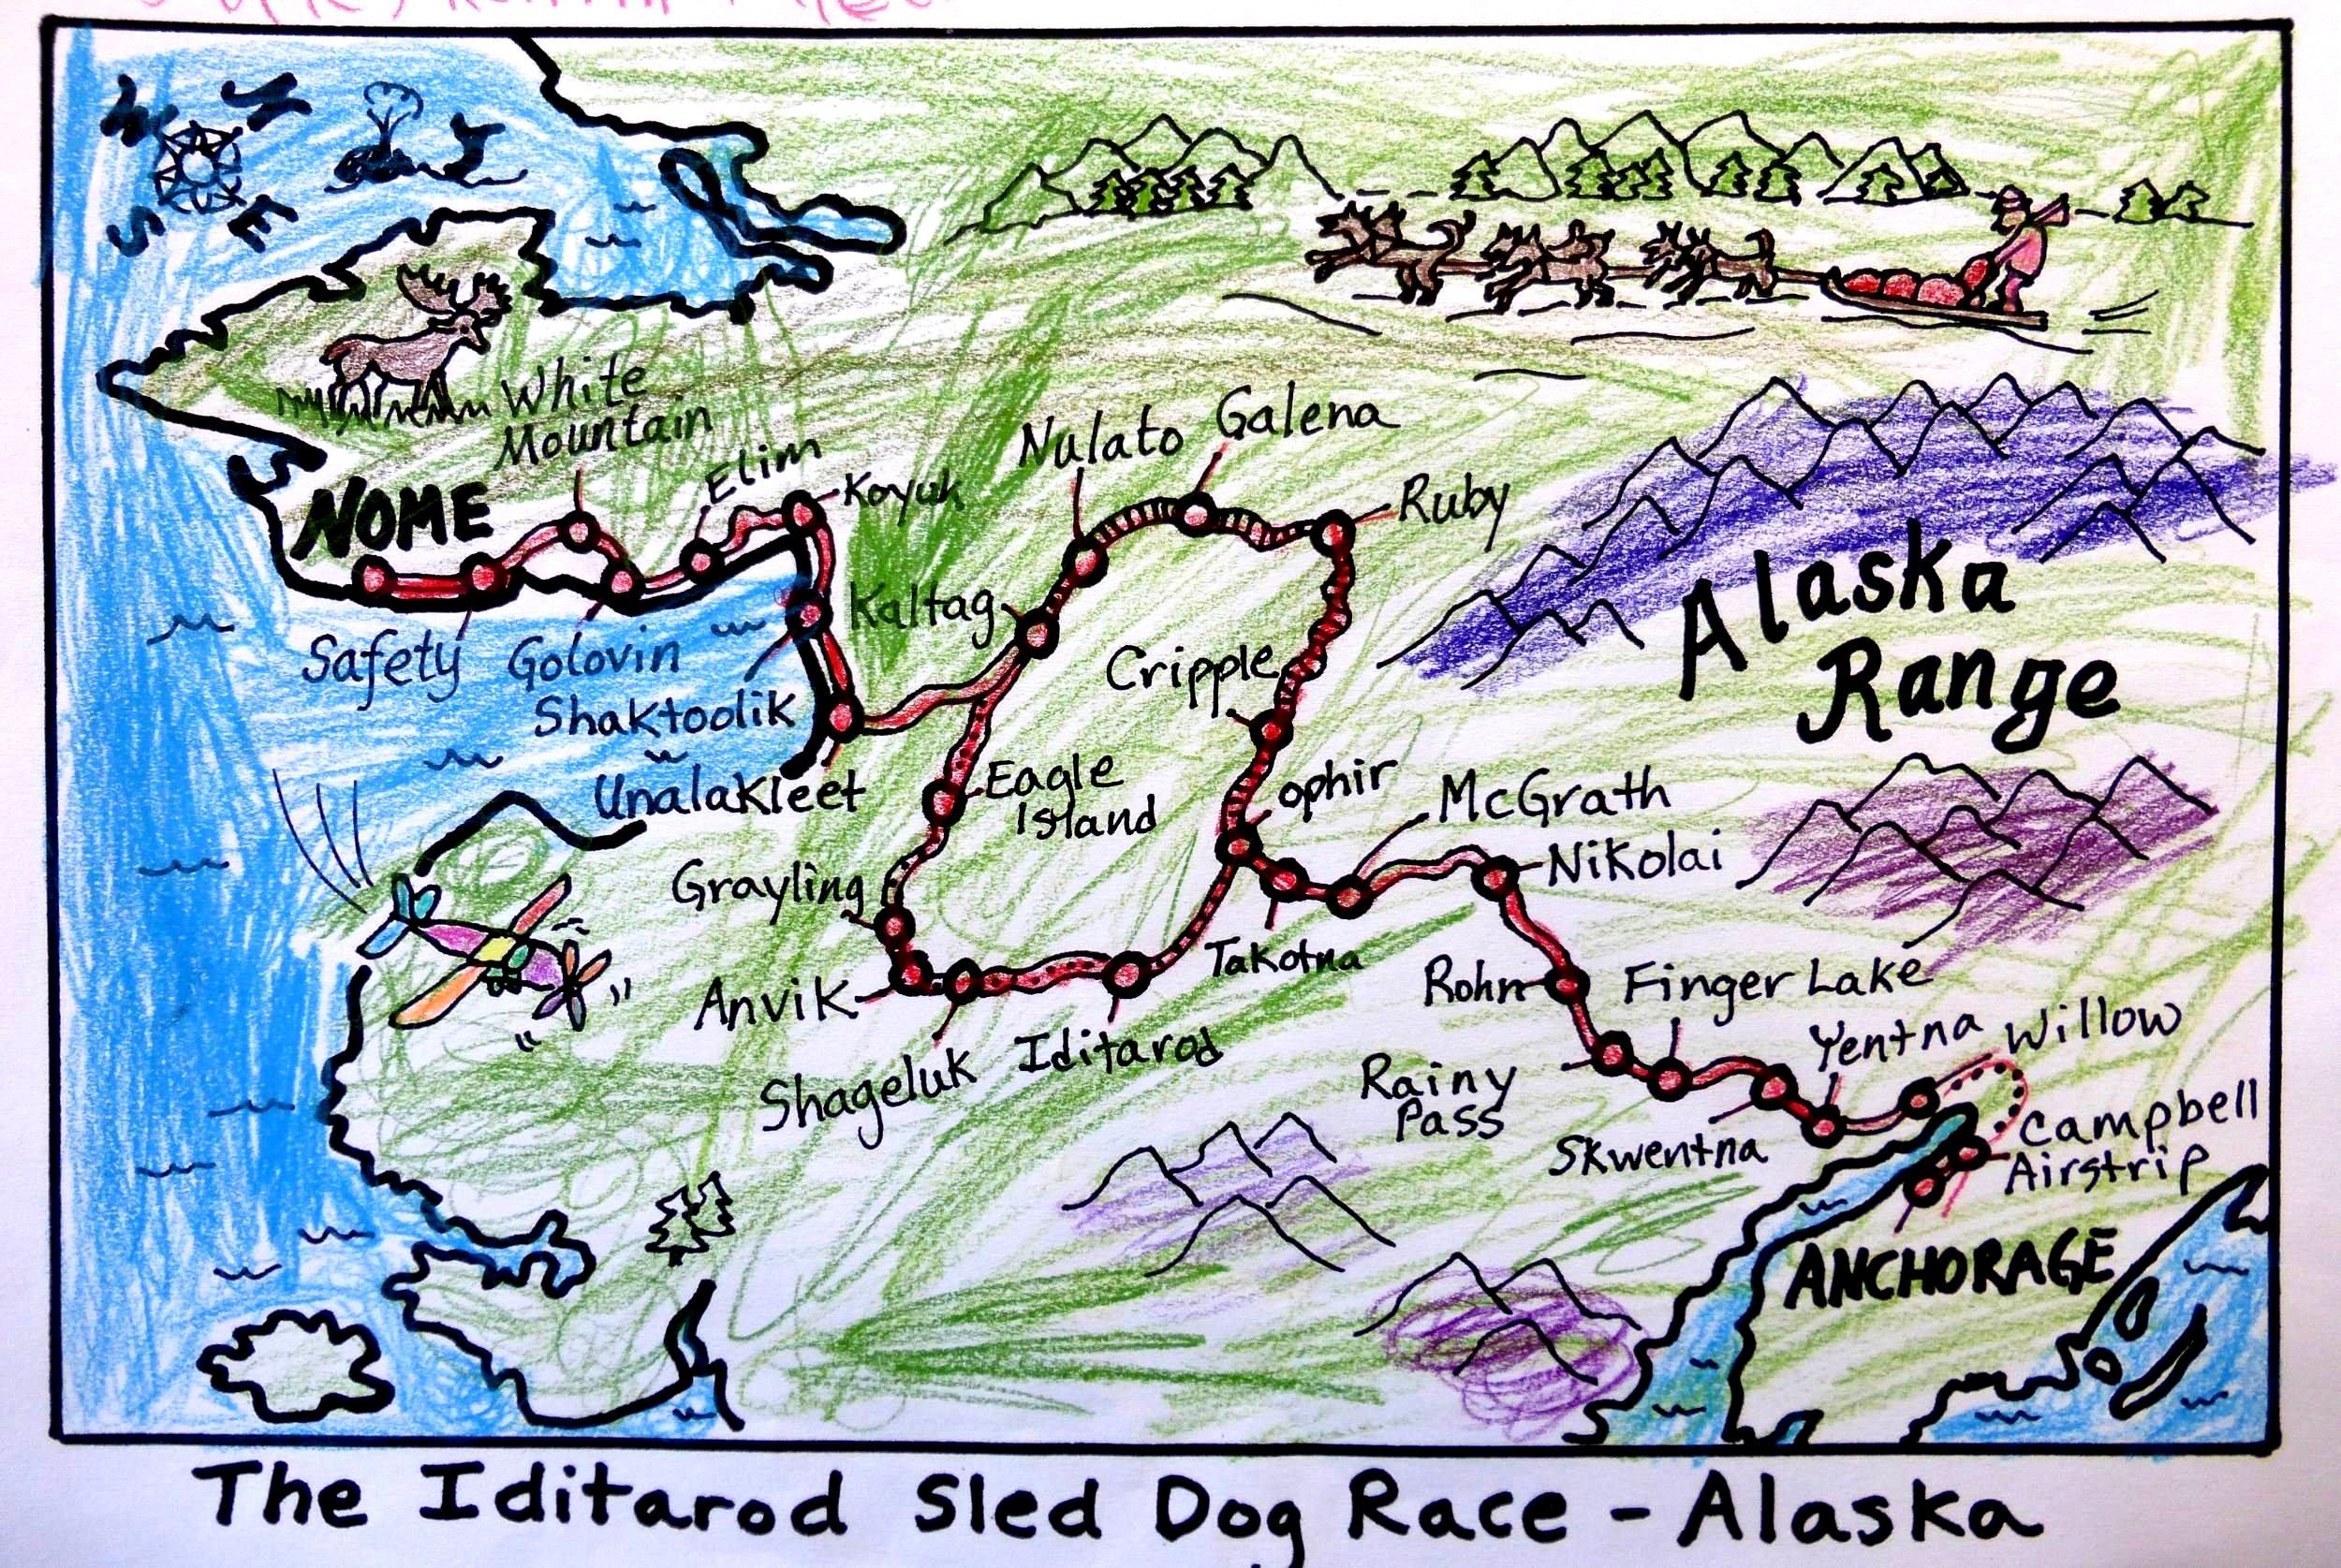 N
W
S
E
White
Mountain
Elim
Koyuk
NOME
Nulato
Galena
Ruby
Kaltag
Safety
Golovin
Shaktoolik
Unalakleet
Cripple
Alaska
Range
Eagle
Island
ophir
McGrath
Nikolai
Grayling
Anvik
Shageluk
Iditarod
Takotna
Rohn
Finger Lake
Rainy
Pass
Skwentna
Yentna
Willow
Campbell
Airstrip
ANCHORAGE
The Iditarod Sled Dog Race - Alaska